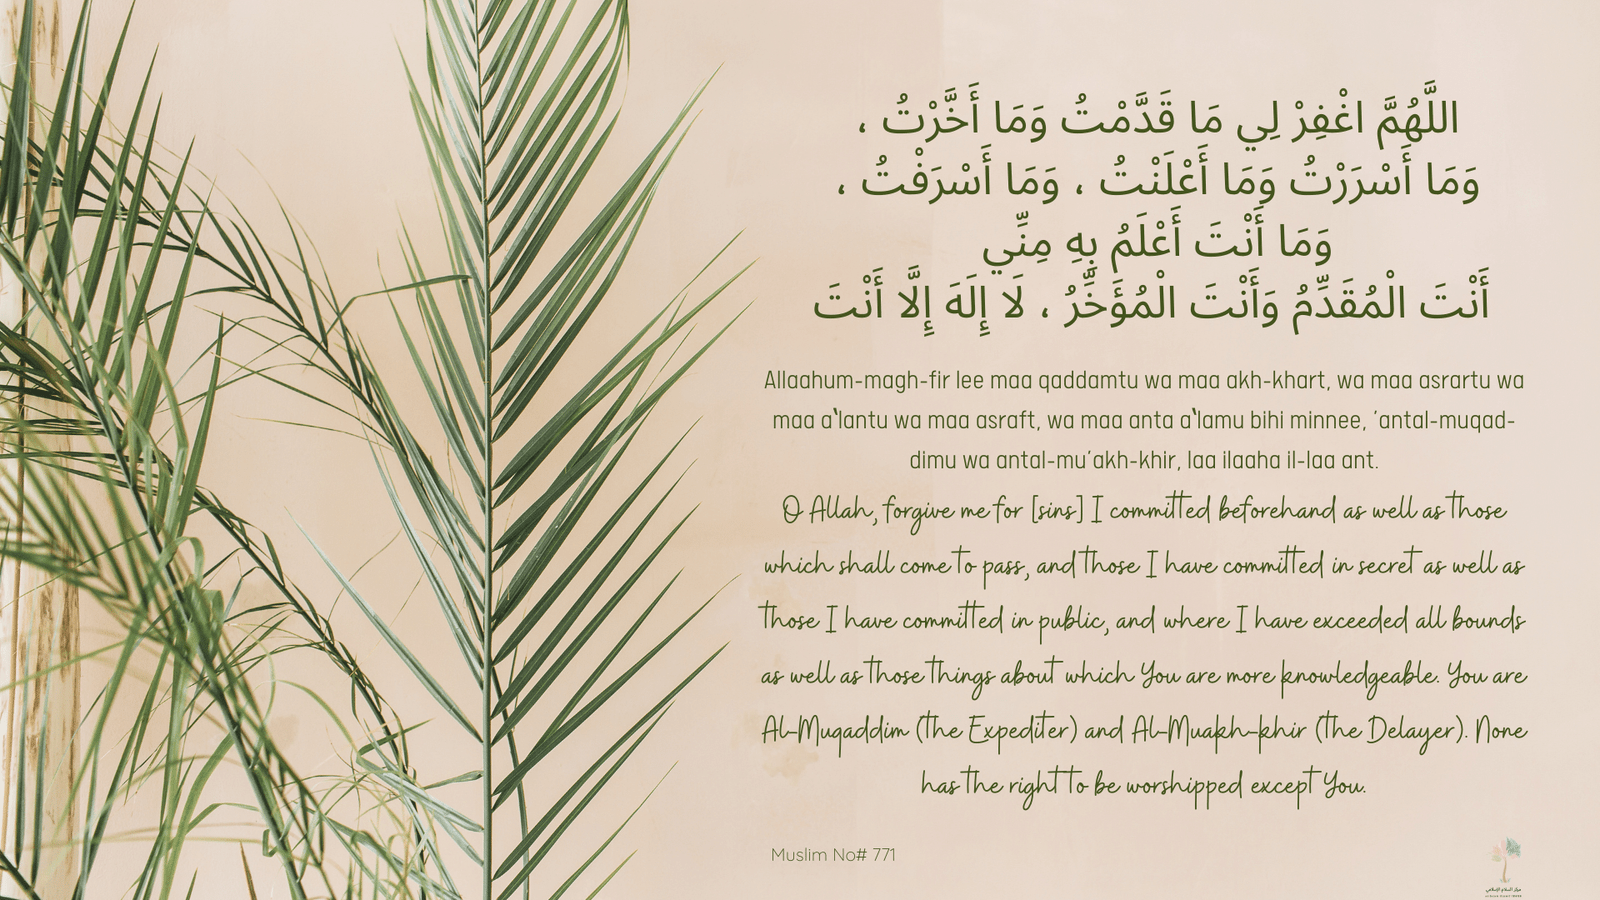 اللَّهُمَّ اغْفِرْ لِي مَا قَدَّمْتُ وَمَا أَخَّرْتُ ،
وَمَا أَسْرَرْتُ وَمَا أَعْلَنْتُ ، وَمَا أَسْرَفْتُ ،
وَمَا أَنْتَ أَعْلَمُ بِهِ مِنِّي
أَنْتَ الْمُقَدِّمُ وَأَنْتَ الْمُؤَخِّرُ ، لَا إِلَهَ إِلَّا أَنْتَ
Allaahum-magh-fir lee maa qaddamtu wa maa akh-khart, wa maa asrartu wa
maa a‘lantu wa maa asraft, wa maa anta a‘lamu bihi minnee, 'antal-muqad-
dimu wa antal-mu'akh-khir, laa ilaaha il-laa ant.
O Allah, forgive me for [sins] I committed beforehand as well as those
which shall come to pass, and those I have committed in secret as well as
those I have committed in public, and where I have exceeded all bounds
as well as those things about which You are more knowledgeable. You are
Al-Muqaddim (the Expediter) and Al-Muakh-khir (the Delayer). None
has the right to be worshipped except You.
Muslim No# 771
مركز السلام الإسلامي